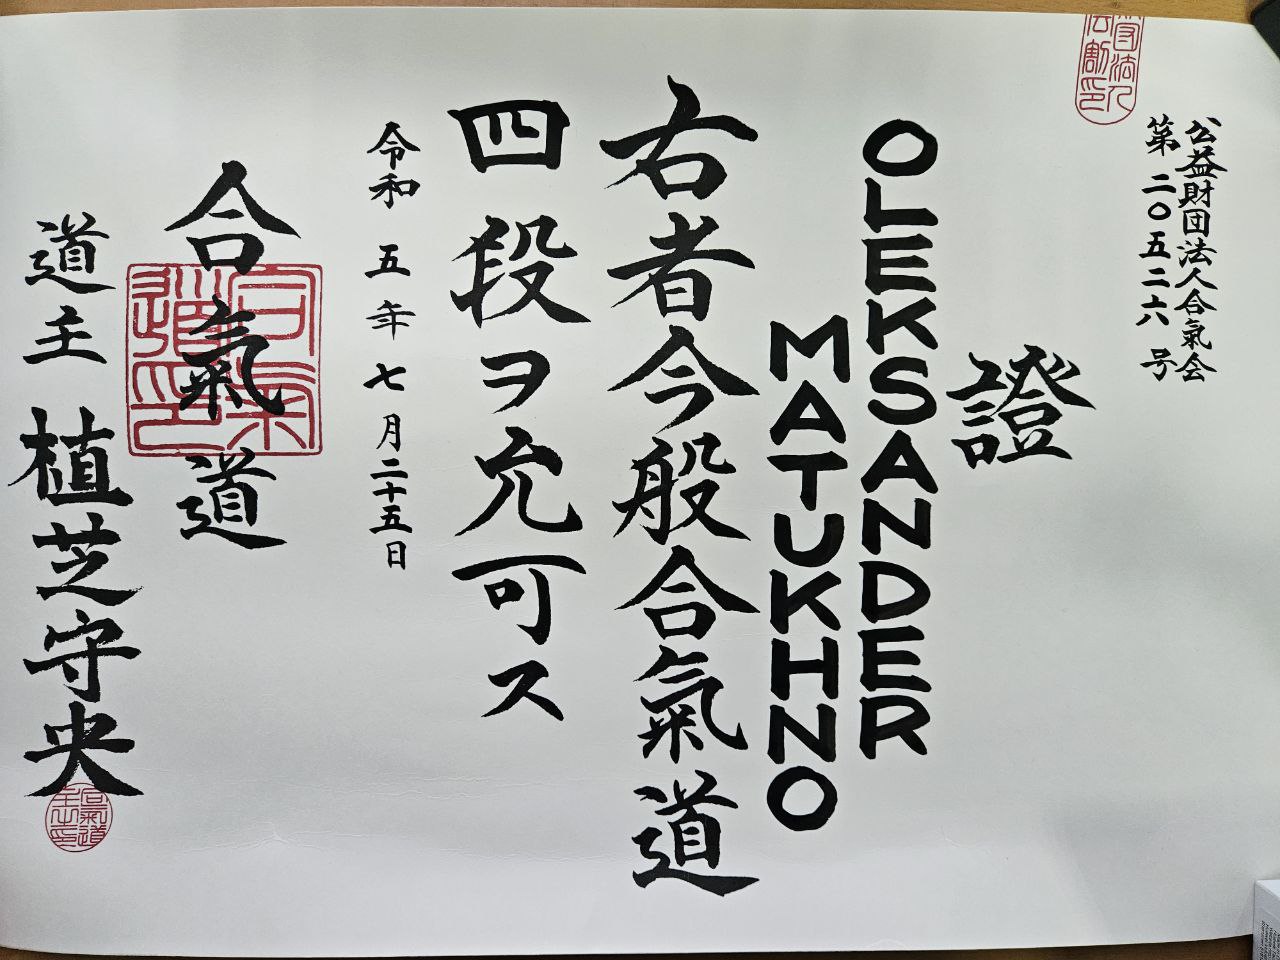 公益財団法人合氣会
第二〇五二六号
證
OLEKSANDER
MATUKHNO
右者今般合氣道
四段ヲ允可ス
令和五年七月二十五日
合氣道
道主 植芝守央